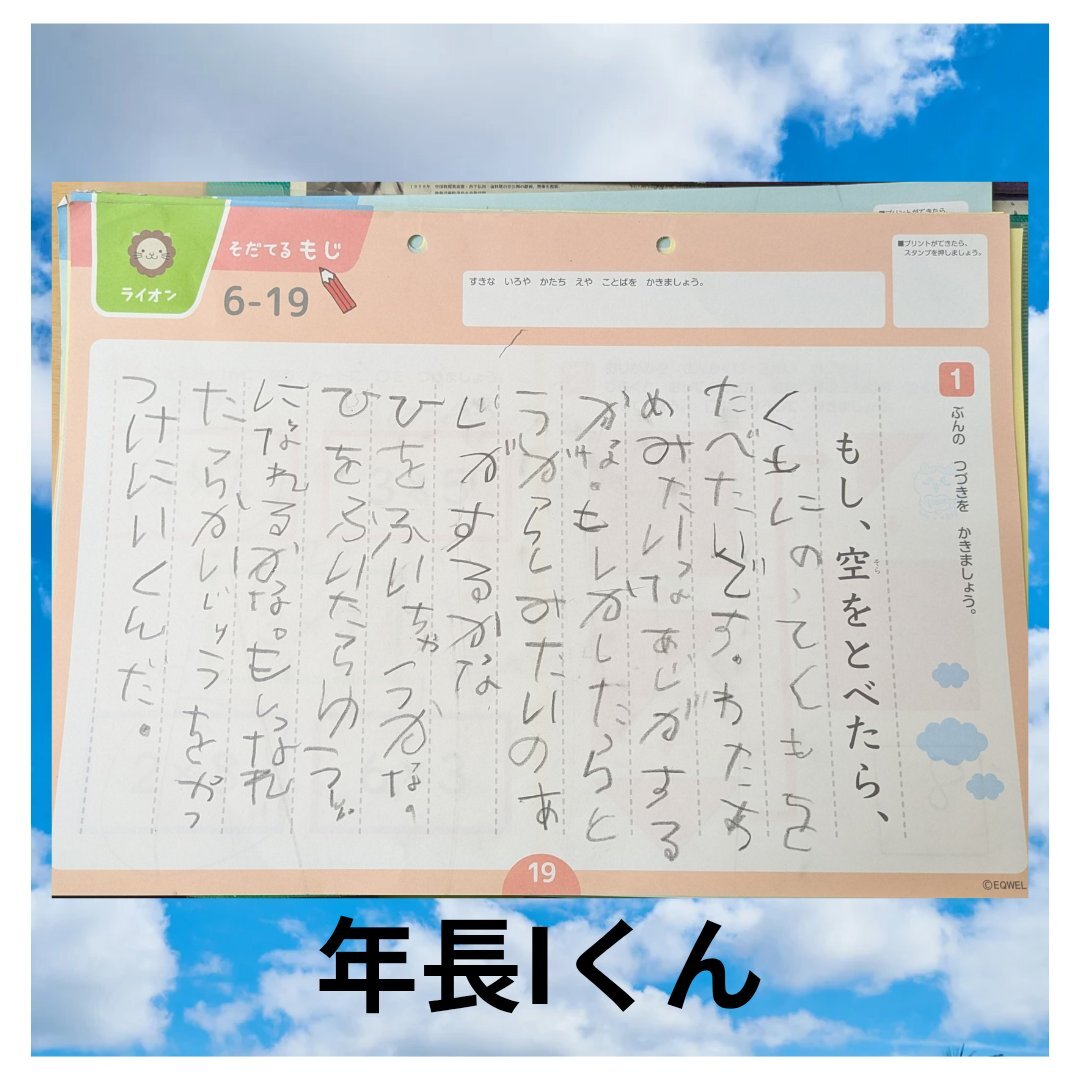 そだてる もじ
ライオン
6-19
すきな いろや かたち えや ことばを かきましょう。
■プリントができたら、
スタンプを押しましょう。
1 ぶんの つづきを かきましょう。
もし、空をとべたら、
そら
くもにのってくもを
たべたいです。わたあ
めみたいなあじがする
かな。もしかしたらと
うがらしみたいのあ
じがするかな
ひをふいちゃうかな。
ひをふいたら
になれるかな。もしなれ
たらかいじゅうをやっ
つけにいくんだ。
19
©EQWEL
年長Iくん